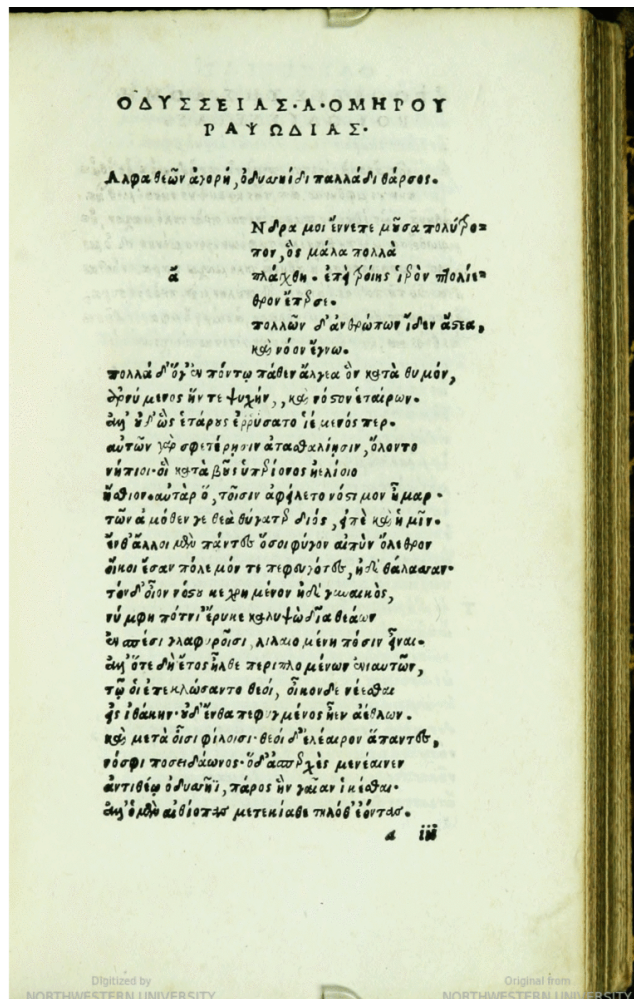 ΟΔΥΣΣΕΙΑΣ·Α·ΟΜΗΡΟΥ
ΡΑΨΩΔΙΑΣ·
Αλφα θεῶν ἀγορὴ, ὀδυσσηίδι παλλάδι θάρσος.
ἄ
Νδρα μοι ἔννεπε μοῦσα πολύτρο=
πον, ὃς μάλα πολλὰ
πλάγχθη. ἐπεὶ τροίης ἱερὸν πτολίε=
θρον ἔπερσε.
πολλῶν δ' ἀνθρώπων ἴδεν ἄστεα,
καὶ νόον ἔγνω.
πολλὰ δ' ὅγ' ἐν πόντῳ πάθεν ἄλγεα ὃν κατὰ θυμόν,
ἀρνύμενος ἥν τε ψυχὴν,, καὶ νόστον ἑταίρων.
ἀλλ' οὐδ' ὣς ἑτάρους ἐρρύσατο ἱέμενός περ.
αὐτῶν γὰρ σφετέρησιν ἀτασθαλίησιν, ὄλοντο
νήπιοι· οἳ κατὰ βοῦς ὑπερίονος ἠελίοιο
ἤσθιον· αὐτὰρ ὅ, τοῖσιν ἀφείλετο νόστιμον ἦμαρ·
τῶν ἁμόθεν γε θεὰ θύγατερ διός, εἰπὲ καὶ ἡμῖν.
ἔνθ' ἄλλοι μὲν πάντες ὅσοι φύγον αἰπὺν ὄλεθρον
οἴκοι ἔσαν πόλεμόν τε πεφευγότες, ἠδὲ θάλασσαν·
τόνδ' οἶον νόστου κεχρημένον ἠδὲ γυναικὸς,
νύμφη πότνι' ἔρυκε καλυψὼ δῖα θεάων
ἐν σπέσι γλαφυροῖσι, λιλαιομένη πόσιν εἶναι.
ἀλλ' ὅτε δὴ ἔτος ἦλθε περιπλομένων ἐνιαυτῶν,
τῷ οἱ ἐπεκλώσαντο θεοί, οἶκονδε νέεσθαι
εἰς ἰθάκην· οὐδ' ἔνθα πεφυγμένος ἦεν ἀέθλων.
καὶ μετὰ οἷσι φίλοισι· θεοὶ δ' ἐλέαιρον ἅπαντες,
νόσφι ποσειδάωνος· ὅδ' ἀσπερχὲς μενέαινεν
ἀντιθέῳ ὀδυσσῆϊ, πάρος ἣν γαῖαν ἱκέσθαι·
ἀλλ' ὁ μὲν αἰθίοπας μετεκίαθε τηλόθ' ἐόντας.
a iii
Digitized by
NORTHWESTERN UNIVERSITY
Original from
NORTHWESTERN UNIVERSITY